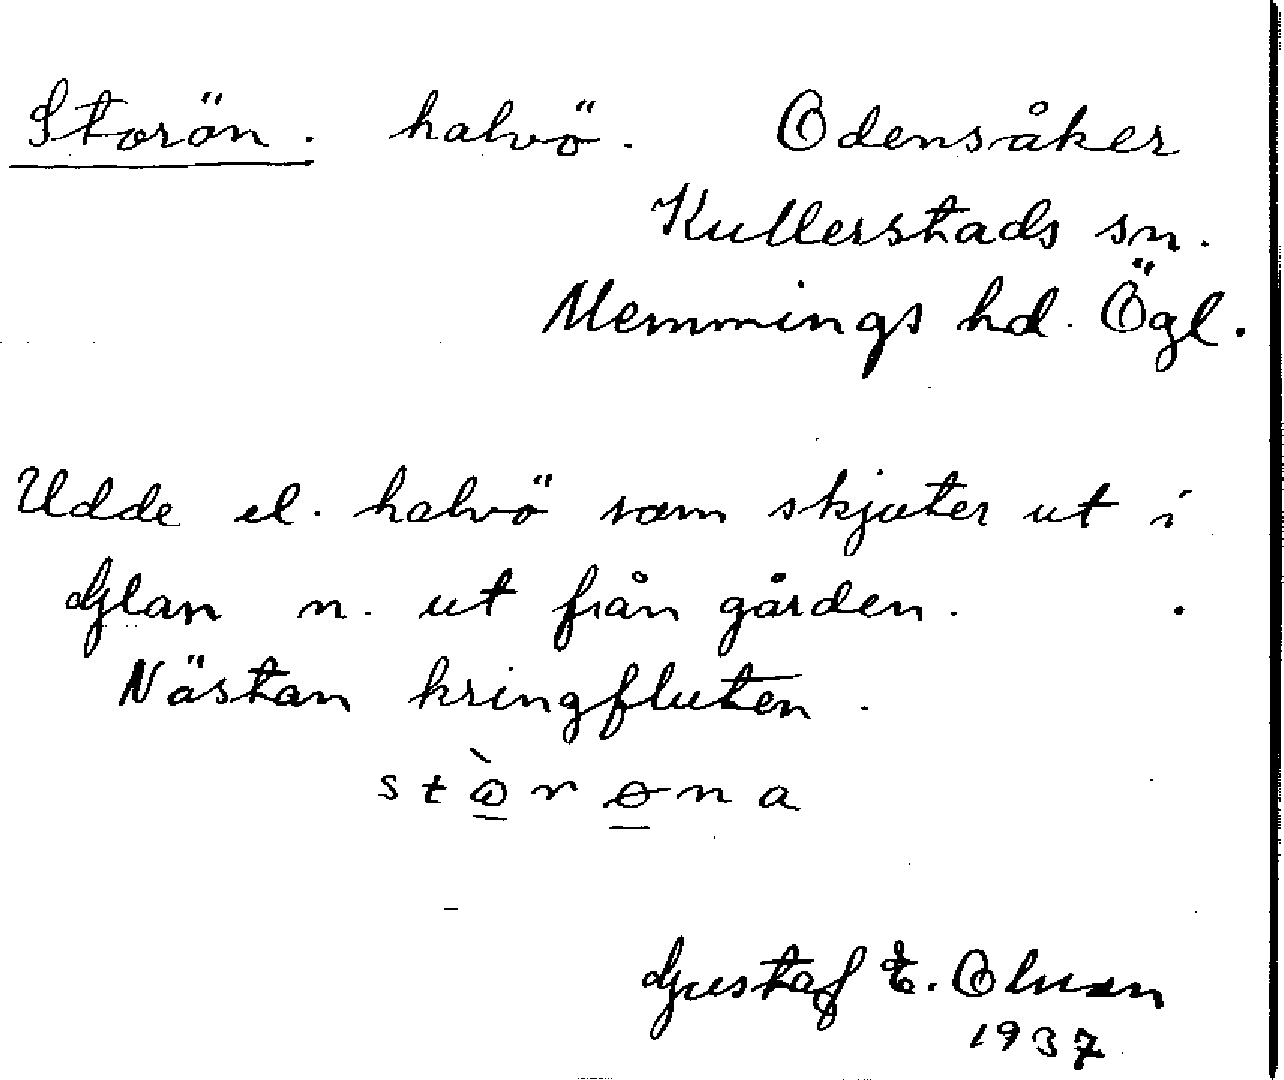 Storön. halvö. Odensåker
Kullerstads sn.
Memmings hd. Ögl.
Udde el. halvö som skjuter ut i
Glan n. ut från gården.
Nästan kringfluten.
Gustaf E. Olsson
1937